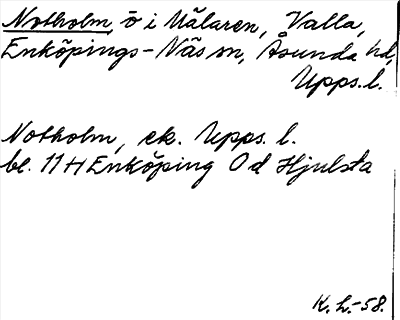 Notholm, ö i Mälaren, Valla,
Enköpings-Näs sn, Åsunda hd,
Upps. l.
Notholm, ek. Upps. l.
bl. 11 H Enköping 0 d Hjulsta
K. L.-58.